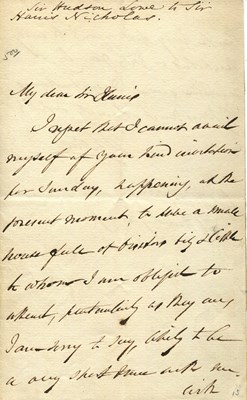 Sir Hudson Lowe to Sir
Harris Nicholas.
My dear Sir Harris
I regret that I cannot avail
myself of your kind invitation
for Sunday, happening, at the
present moment to have a small
house full of Visitors big & little
to whom I am obliged to
attend, particularly as they are,
I am sorry to say, likely to be
a very short time with me.